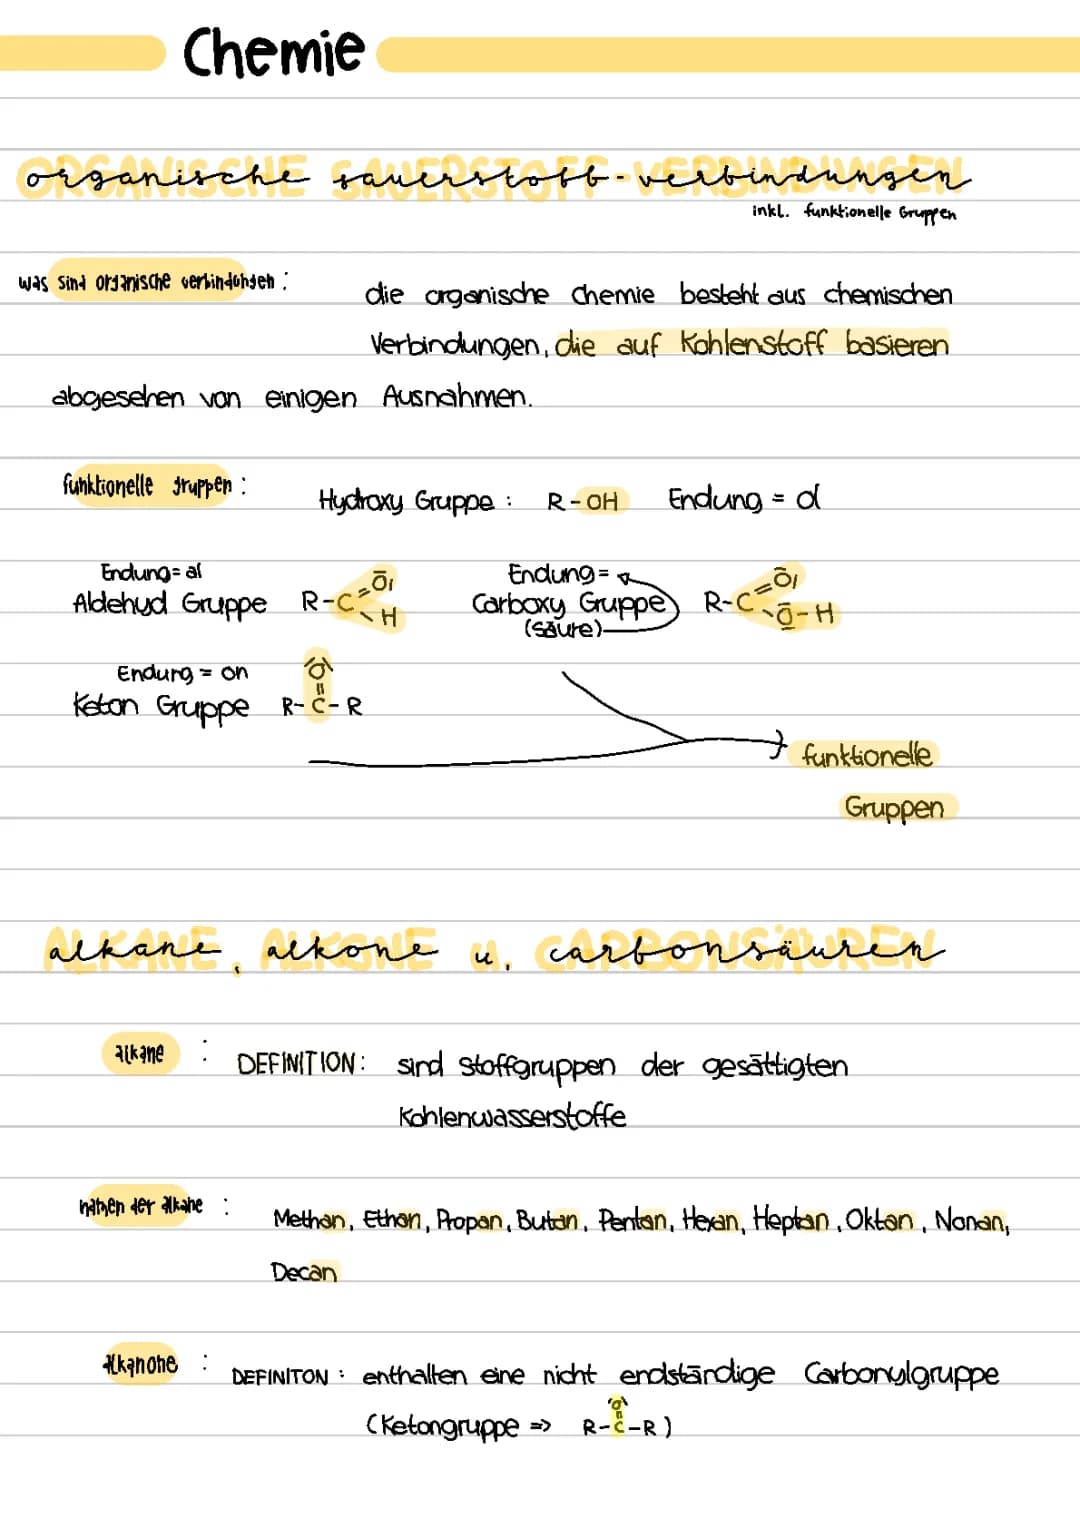 Chemie
organische sauerstoff-verbindungen
inkl. funktionelle Gruppen
was sind organische verbindungen :
die organische Chemie besteht aus chemischen
Verbindungen, die auf Kohlenstoff basieren
abgesehen von einigen Ausnahmen.
funktionelle gruppen :
Hydroxy Gruppe : R-OH Endung = ol
Endung = al
Aldehyd Gruppe R-C=O H
Endung =
Carboxy Gruppe R-C=O O-H
(säure)
Endung = on
Keton Gruppe R-C-R O
funktionelle
Gruppen
alkane, alkone u. carbonsäuren
alkane :
DEFINITION : sind Stoffgruppen der gesättigten
Kohlenwasserstoffe
namen der alkane :
Methan, Ethan, Propan, Butan, Pentan, Hexan, Heptan, Oktan, Nonan,
Decan
alkanone :
DEFINITON : enthalten eine nicht endständige Carbonylgruppe
(Ketongruppe => R-C-R) O